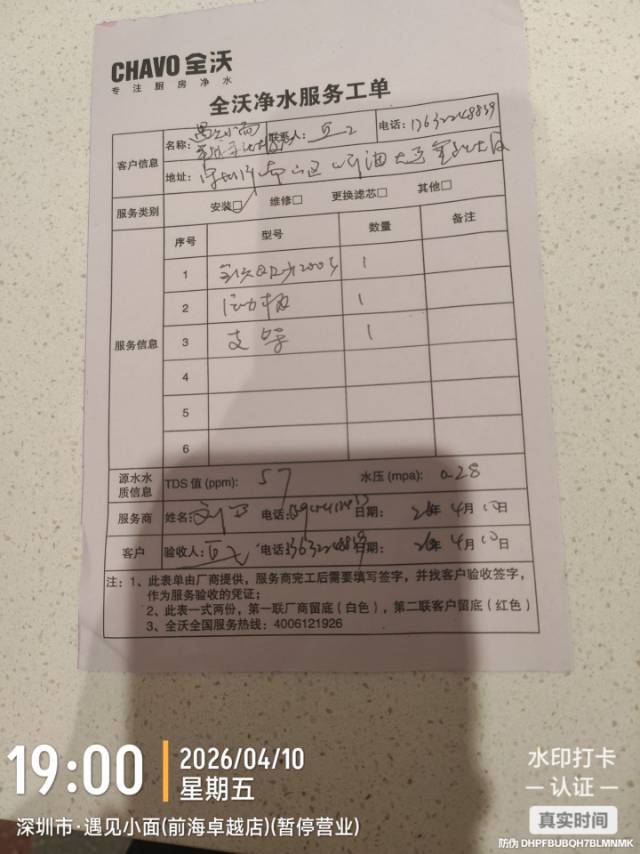 CHAVO 全沃
专注厨房净水
全沃净水服务工单
客户信息
名称: 遇见小面
联系人:
电话: 13632248839
地址: 深圳市南山区
服务类别 安装□ 维修□ 更换滤芯□ 其他□
服务信息
序号 型号 数量 备注
1 1
2 1
3 支架 1
4
5
6
源水水质信息 TDS 值 (ppm): 57 水压 (mpa): 0.28
服务商 姓名: 刘 电话: 日期: 26年 4月 10日
客户 验收人: 电话: 13632248839 日期: 26年 4月 10日
注: 1、此表单由厂商提供，服务商完工后需要填写签字，并找客户验收签字，
作为服务验收的凭证；
2、此表一式两份，第一联厂商留底（白色），第二联客户留底（红色）
3、全沃全国服务热线：4006121926
19:00
2026/04/10
星期五
深圳市·遇见小面(前海卓越店)(暂停营业)
水印打卡
认证
真实时间
防伪 DHPFBUBQH7BLMNMK